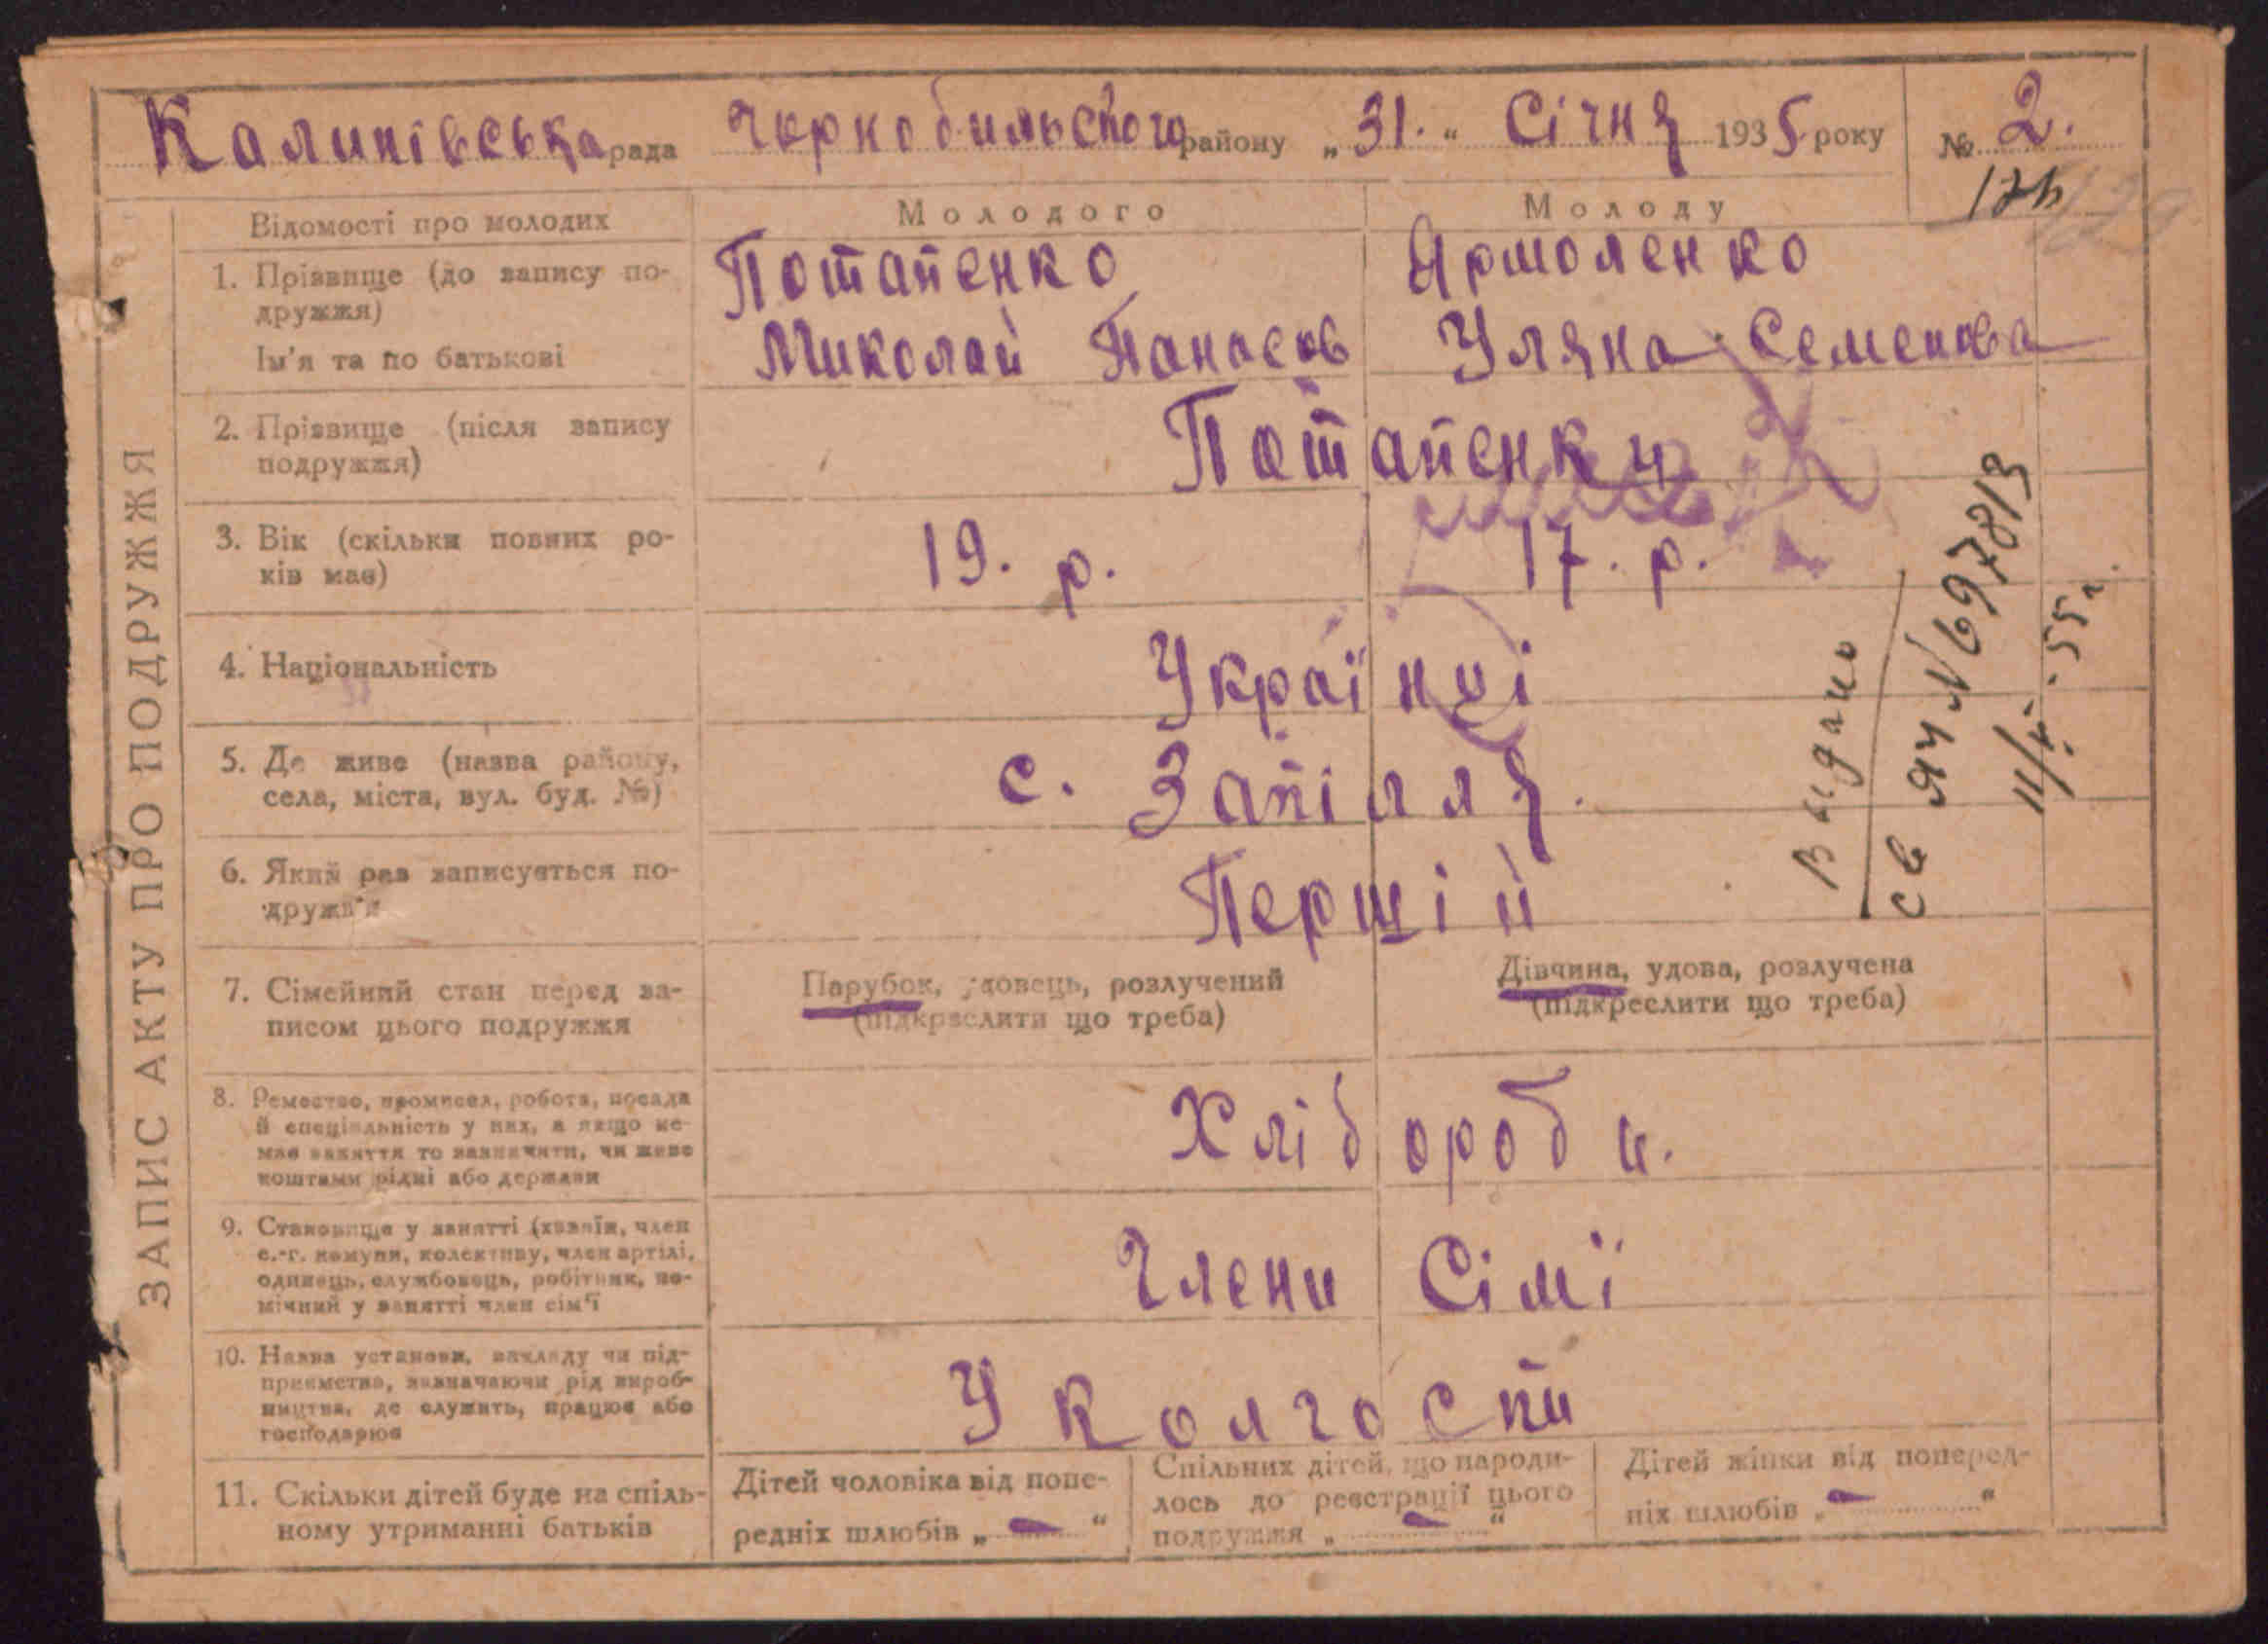 Калинівська рада Чорнобильського району „31.“ Січня 1935 року № 2.
ЗАПИС АКТУ ПРО ПОДРУЖЖЯ
Відомості про молодих
Молодого
Молоду
1. Прізвище (до запису по-
дружжя)
Потапенко
Ярмоленко
Ім'я та по батькові
Миколай Панасов
Уляна Семенова
2. Прізвище (після запису
подружжя)
Потапенки
3. Вік (скільки повних ро-
ків має)
19. р.
17. р.
4. Національність
Українці
5. Де живе (назва району,
села, міста, вул. буд. №)
с. Запілля.
6. Який раз записується по-
дружжя
Перший
7. Сімейний стан перед за-
писом цього подружжя
Парубок, удовець, розлучений
(підкреслити що треба)
Дівчина, удова, розлучена
(підкреслити що треба)
8. Ремество, промисел, робота, посада
й спеціальність у них, а якщо не-
має заняття то зазначити, чи живе
коштами рідні або держави
Хлібороби.
9. Становище у занятті (хазяїн, член
с.-г. комуни, колективу, член артілі,
одинець, службовець, робітник, по-
мічний у занятті член сім'ї
Члени Сімї
10. Назва установи, закладу чи під-
приємства, зазначаючи рід вироб-
ництва, де служить, працює або
господарює
У колгоспи
11. Скільки дітей буде на спіль-
ному утриманні батьків
Дітей чоловіка від попе-
редніх шлюбів „ - “
Спільних дітей, що народи-
лось до реєстрації цього
подружжя „ - “
Дітей жінки від поперед-
ніх шлюбів „ - “
Видано
св ЯЧ № 697813
11/V-55г.